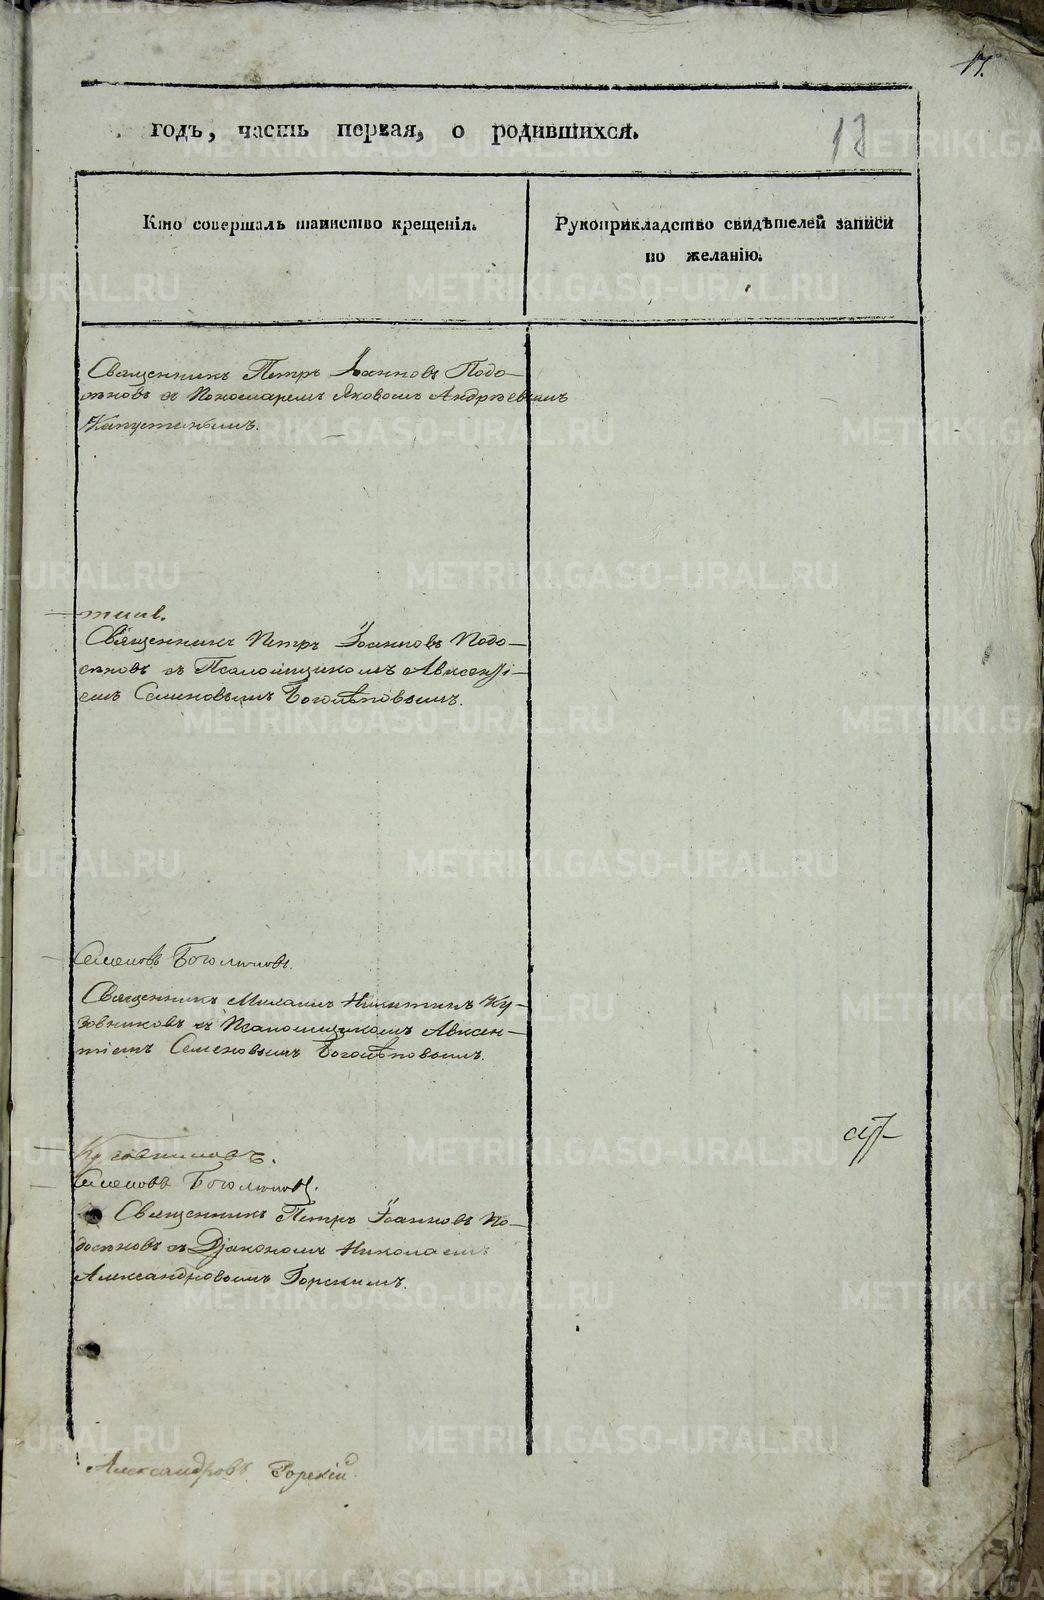 17.
13
годъ, часть первая, о родившихся.
Кто совершалъ таинство крещенія.
Рукоприкладство свидѣтелей записи
по желанію.
Священникъ Петръ Іоанновъ Подо-
сѣновъ съ Пономаремъ Яковомъ Андрѣевымъ
Капустинымъ.
Священникъ Петръ Іоанновъ Подо-
сѣновъ съ Псаломщикомъ Авксенті-
емъ Семеновымъ Боголѣповымъ.
Семеновъ Боголѣповъ.
Священникъ Михаилъ Никитинъ Ку-
зовниковъ съ Псаломщикомъ Авксен-
тіемъ Семеновымъ Боголѣповымъ.
Кузовниковъ.
Семеновъ Боголѣповъ.
Священникъ Петръ Іоанновъ По-
досѣновъ съ Діакономъ Николаемъ
Александровымъ Горскимъ.
Александровъ Горскій.
METRIKI.GASO-URAL.RU